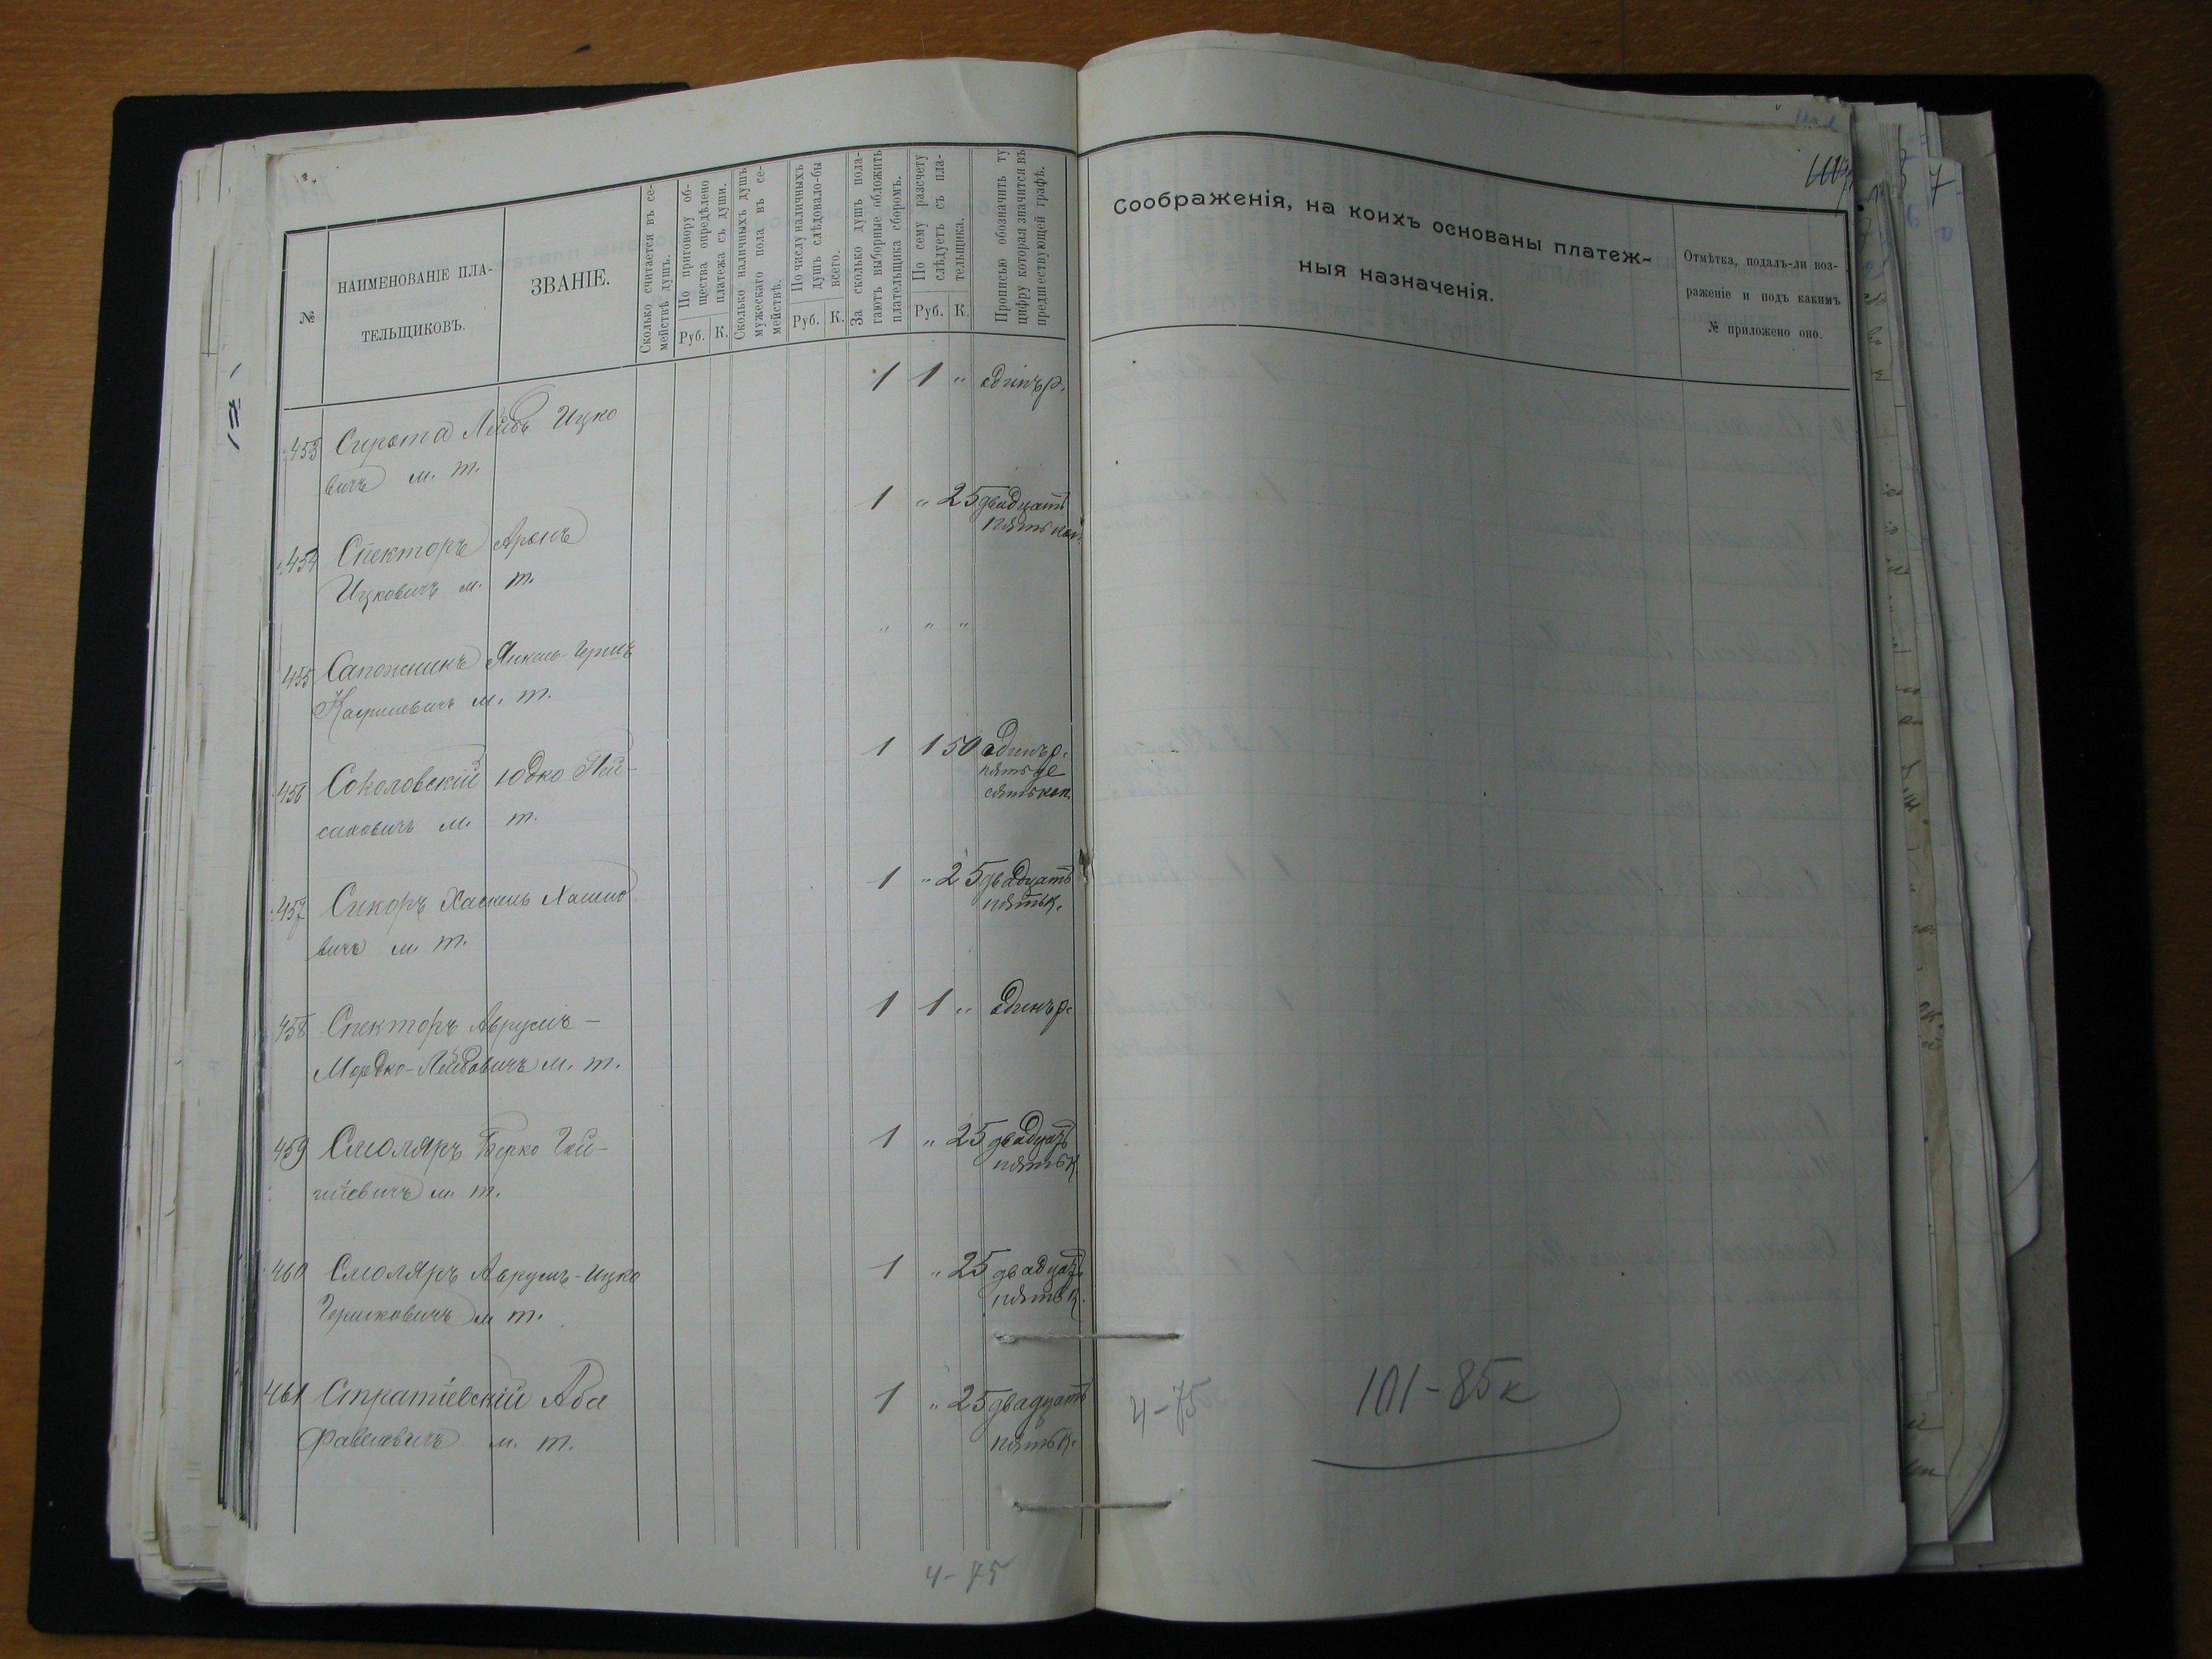 №
НАИМЕНОВАНІЕ ПЛА-
ТЕЛЬЩИКОВЪ.
ЗВАНІЕ.
Сколько считается въ се-
мействѣ душъ.
По приговору об-
щества опредѣлено
платежа съ души.
Руб. К.
Сколько наличныхъ душъ
мужескаго пола въ се-
мействѣ.
По числу наличныхъ
душъ слѣдовало-бы
всего.
Руб. К.
За сколько душъ пола-
гаютъ выборные обложить
плательщика сборомъ.
По сему расчету
слѣдуетъ съ пла-
тельщика.
Руб. К.
Прописью обозначить ту
цифру которая значится въ
предшествующей графѣ.
Соображенія, на коихъ основаны платеж-
ныя назначенія.
Отмѣтка, подалъ-ли воз-
раженіе и подъ какимъ
№ приложено оно.
453 Сирота Лейбъ Ицко
вичъ м. т.
1 1 " одинъ р.
454 Спекторъ Аронъ
Ицковичъ м. т.
1 " 25 двадцать
пять коп.
455 Сапожникъ Янкель-Герш
м. т.
" " "
456 Соколовскій Юдко Пей-
саховичъ м. т.
1 1 50 одинъ р.
пятьде
сять коп.
457 Сикоръ Хаскель Хаимо
вичъ м. т.
1 " 25 двадцать
пять к.
458 Спекторъ Аврумъ-
Мордко-Лейбовичъ м. т.
1 1 " одинъ р.
459 Смоляръ Берко
м. т.
1 " 25 двадцать
пять к.
460 Смоляръ Аврумъ-Ицко
Гершковичъ м т.
1 " 25 двадцать
пять к.
461 Стратіевскій Аба
м. т.
1 " 25 двадцать
пять к.
4-75
4-75
101-85к